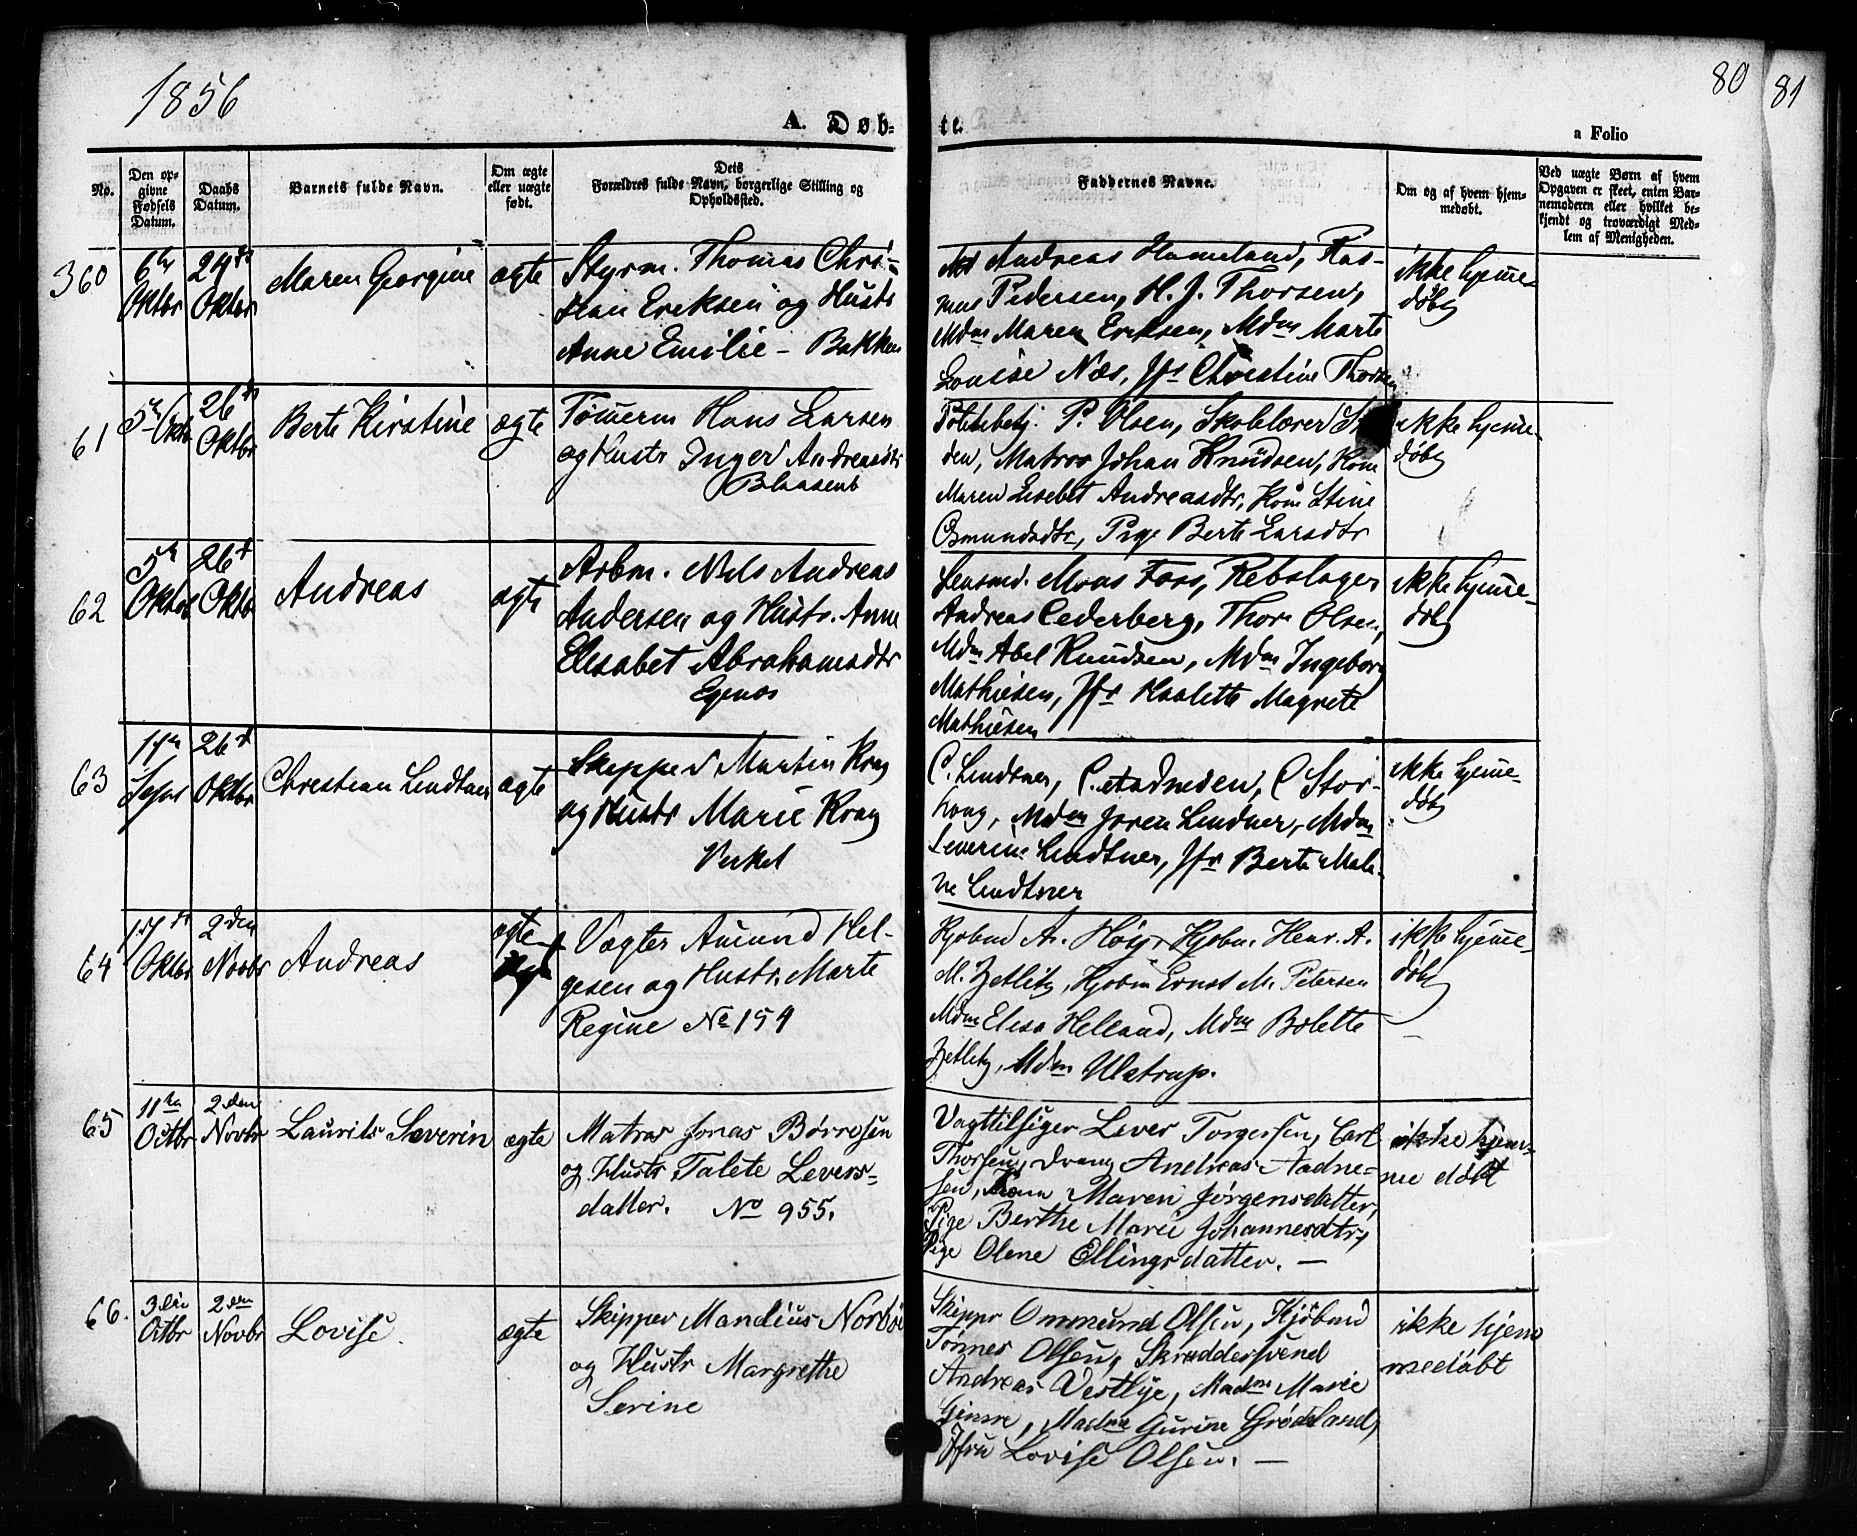 1856
80
81
A. Døb-
te.
a Folio
No.
Den op-
givne
Fødsels
Datum.
Daabs
Datum.
Barnets fulde Navn.
Om ægte
eller uægte
født.
Dets
Forældres fulde Navn, borgerlige Stilling og
Opholdssted.
Faddernes Navne.
Om og af hvem hjem-
medøbt.
Ved uægte Børn af hvem
Opgaven er skeet, enten Bar-
nemoderen eller hvilket be-
kjendt og troværdigt Med-
lem af Menigheden.
360
6te
Oktbr
24de
Oktbr
Maren Georgine
ægte
Styrm. Thomas Chri-
stian Eriksen og Hustr
Anne Emilie - Bakken
Andreas Hameland, Ras-
mus Pedersen, H. J. Thorsen,
Mdm Maren Eriksen, Mdm Marte
Louise Næs, Jfr Christine Thorsen
ikke hjemme-
døbt
61
5te Oktr
26de
Oktbr
Berte Kirstine
ægte
Tømerm Hans Larsen
og Hustr Inger Andreasdtr
Blaasenb
Politibetj. P. Olsen, Skolelærer
den, Matros Johan Knudsen, Kone
Maren Lisebet Andreasdtr, Kone Stine
Osmundsdtr, Pige Berte Larsdtr
ikke hjemme-
døbt
62
5te
Oktbr
26de
Oktbr
Andreas
ægte
Arbm. Nels Andreas
Andersen og Hustr. Anne
Elisabet Abrahamsdtr
Egenæs
Lensmd. Mons Foss, Rebslager
Andreas Cederberg, Thor Olsen,
Mdm Abel Knudsen, Mdm Ingeborg
Mathiesen, Jfr Haalette Magrete
Mathiesen
ikke hjemme-
døbt
63
17de
Septr
26de
Oktbr
Christian Lindtner
ægte
Skipper Martin Krag
og Hustr Marie Krag
Verket
C. Lindtner, C. Aadnesen, C Stor-
houg, Mdm Joren Lindner, Mdm
Severine Lindtner, Jfr Berte Mali-
ne Lindtner
ikke hjemme-
døbt
64
17de
Oktbr
2den
Novbr
Andreas
ægte
Vægter Amund Hel-
gesen og Hustr. Marte
Regine No 154
Kjøbmd A. Høif Kjøbm. Henr. A.
M. Zetlitz, Kjøbm Ernst M. Petersen
Mdm Elisa Helland, Mdm Bolette
Zetlitz, Mdm Ulstrup.
ikke hjemme-
døbt
65
11te
Octbr
2den
Novbr
Laurits Severin
ægte
Matros Jonas Børresen
og Hustr Talete Levers-
datter. No 955.
Vagttilsiger Lever Torgersen, Carl
Thorsen, Dreng Andreas Aadne-
sen, Kone Maren Jørgensdatter,
Pige Berthe Marie Johannesdtr,
Pige Olene Ellingsdatter. —
ikke hjem-
me døbt
66.
3die
Octbr
2den
Novbr
Lovise.
ægte
Skipper Mandius Norbø
og Hustr Margrethe
Serine
Skippr Ommund Olsen, Kjøbmd
Tønnes Olsen, Skræddersvend
Andreas Vestlye, Madme Marie
Gimre, Madme Gurine Grødeland,
Jfru Lovise Olsen. —
ikke hjem
medøbt